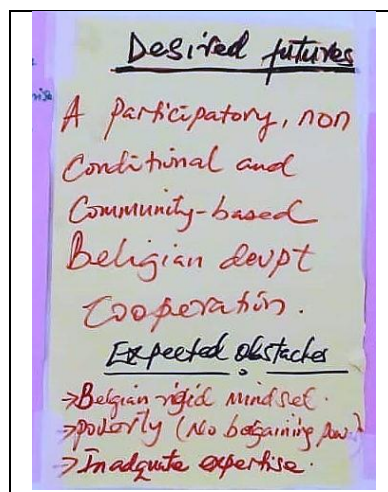 Desired futures
A participatory, non
Conditional and
Community-based
Beligian devpt
Cooperation.
Expected obstacles
→Belgian rigid mindset.
→poverty (No bagaining pow.)
→Inadquate expertise.